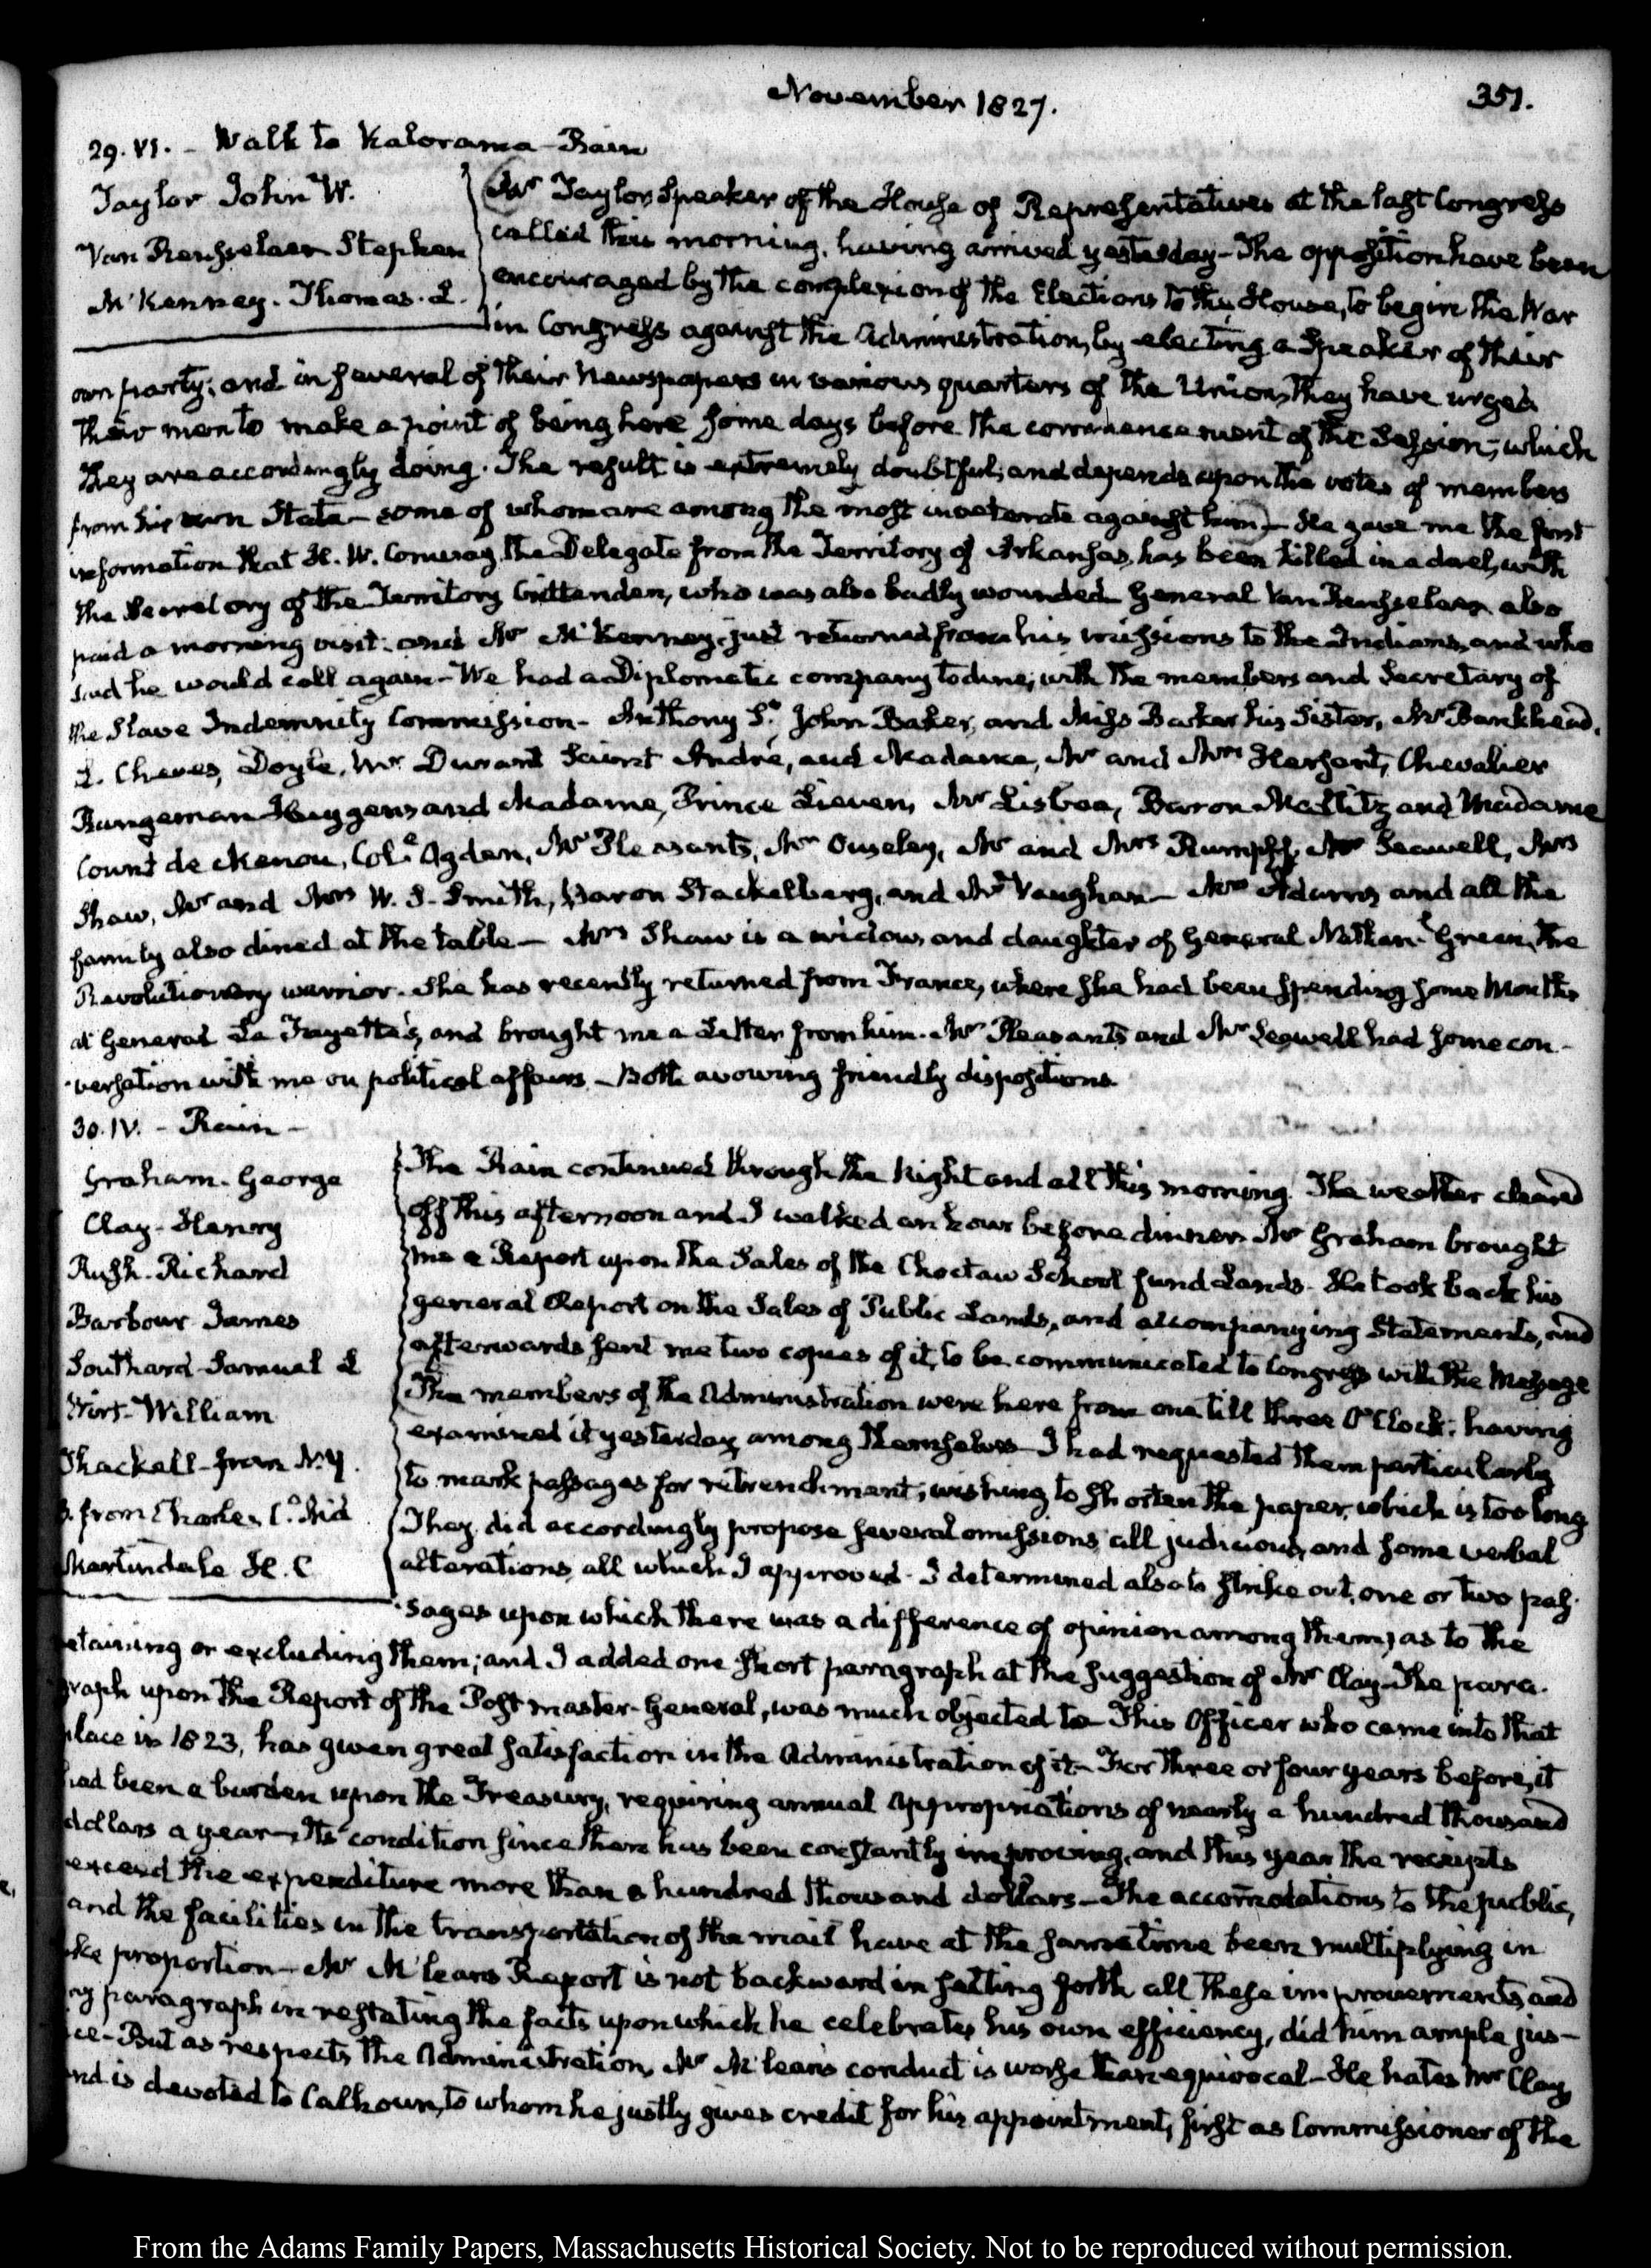 November 1827.
351.
29. VI. - Walk to Kalorama - Rain
Taylor John W.
Van Rensselaer Stephen
M'Kenney. Thomas. L.
Mr Taylor, Speaker of the House of Representatives at the last Congress
called this morning, having arrived yesterday - The opposition have been
encouraged by the complexion of the Elections to the House, to begin the War
in Congress against the Administration, by electing a Speaker of their
own party; and in several of their Newspapers in various quarters of the Union, they have urged
their men to make a point of being here some days before the commencement of the Session; which
they are accordingly doing. The result is extremely doubtful, and depends upon the votes of members
from his own State - some of whom are among the most inveterate against him - He gave me the first
information that H. W. Conway, the Delegate from the Territory of Arkansas, has been killed in a duel, with
the Secretary of the Territory Crittenden, who was also badly wounded. General Van Rensselaer also
paid a morning visit: and Mr M'Kenney, just returned from his missions to the Indians, and who
said he would call again - We had a Diplomatic company to dine; with the members and Secretary of
the Slave Indemnity Commission - Anthony St. John Baker, and Miss Baker his Sister, Mr Bankhead,
L. Cheves, Doyle, Mr Durant Saint André, and Madame, Mr and Mrs Hersant, Chevalier
Bangeman Huygens and Madame, Prince Lieven, Mr Lisboa, Baron Maltitz and Madame
Count de Menou, Col.e Ogden, Mr Pleasants, Mr Ouseley, Mr and Mrs Rumpff, Mr Seawell, Mrs
Shaw, Mr and Mrs W. S. Smith, Baron Stackelberg, and Mr Vaughan - Mrs Adams and all the
family also dined at the table - Mrs Shaw is a widow, and daughter of General Nathan.l Green, the
Revolutionary warrior. She has recently returned from France, where she had been spending some Months
at General La Fayette's, and brought me a Letter from him. Mr Pleasants and Mr Seawell had some con-
versation with me on political affairs - Both avowing friendly dispositions.
30. IV. - Rain -
Graham. George
Clay - Henry
Rush. Richard
Barbour James
Southard Samuel L
Wirt - William
Shackall - from N.Y.
from Charles
Martindale H. C
The Rain continued through the Night and all this morning. The weather cleared
off this afternoon and I walked an hour before dinner. Mr Graham brought
me a Report upon the Sales of the Choctaw School fund Lands. He took back his
general Report on the Sales of Public Lands, and accompanying Statements, and
afterwards sent me two copies of it, to be communicated to Congress with the Message
The members of the Administration were here from one till three O'Clock; having
examined it yesterday among themselves - I had requested them particularly
to mark passages for retrenchment; wishing to shorten the paper, which is too long
They did accordingly propose several omissions, all judicious, and some verbal
alterations, all which I approved. I determined also to strike out, one or two pas-
sages upon which there was a difference of opinion among them, as to the
retaining or excluding them; and I added one short paragraph at the suggestion of Mr Clay - The para-
graph upon the Report of the Post master-General, was much objected to - This Officer who came into that
place in 1823, has given great satisfaction in the Administration of it - For three or four years before, it
had been a burden upon the Treasury, requiring annual appropriations of nearly a hundred thousand
dollars a year - Its condition since then has been constantly improving, and this year the receipts
exceed the expenditure more than a hundred thousand dollars - The accomodations to the public,
and the facilities in the transportation of the mail have at the same time been multiplying in
like proportion - Mr M'lean's Report is not backward in setting forth all these improvements, and
my paragraph in restating the facts upon which he celebrates his own efficiency, did him ample jus-
ce - But as respects the Administration, Mr M'lean's conduct is worse than equivocal - He hates Mr Clay
and is devoted to Calhoun, to whom he justly gives credit for his appointment, first as Commissioner of the
From the Adams Family Papers, Massachusetts Historical Society. Not to be reproduced without permission.